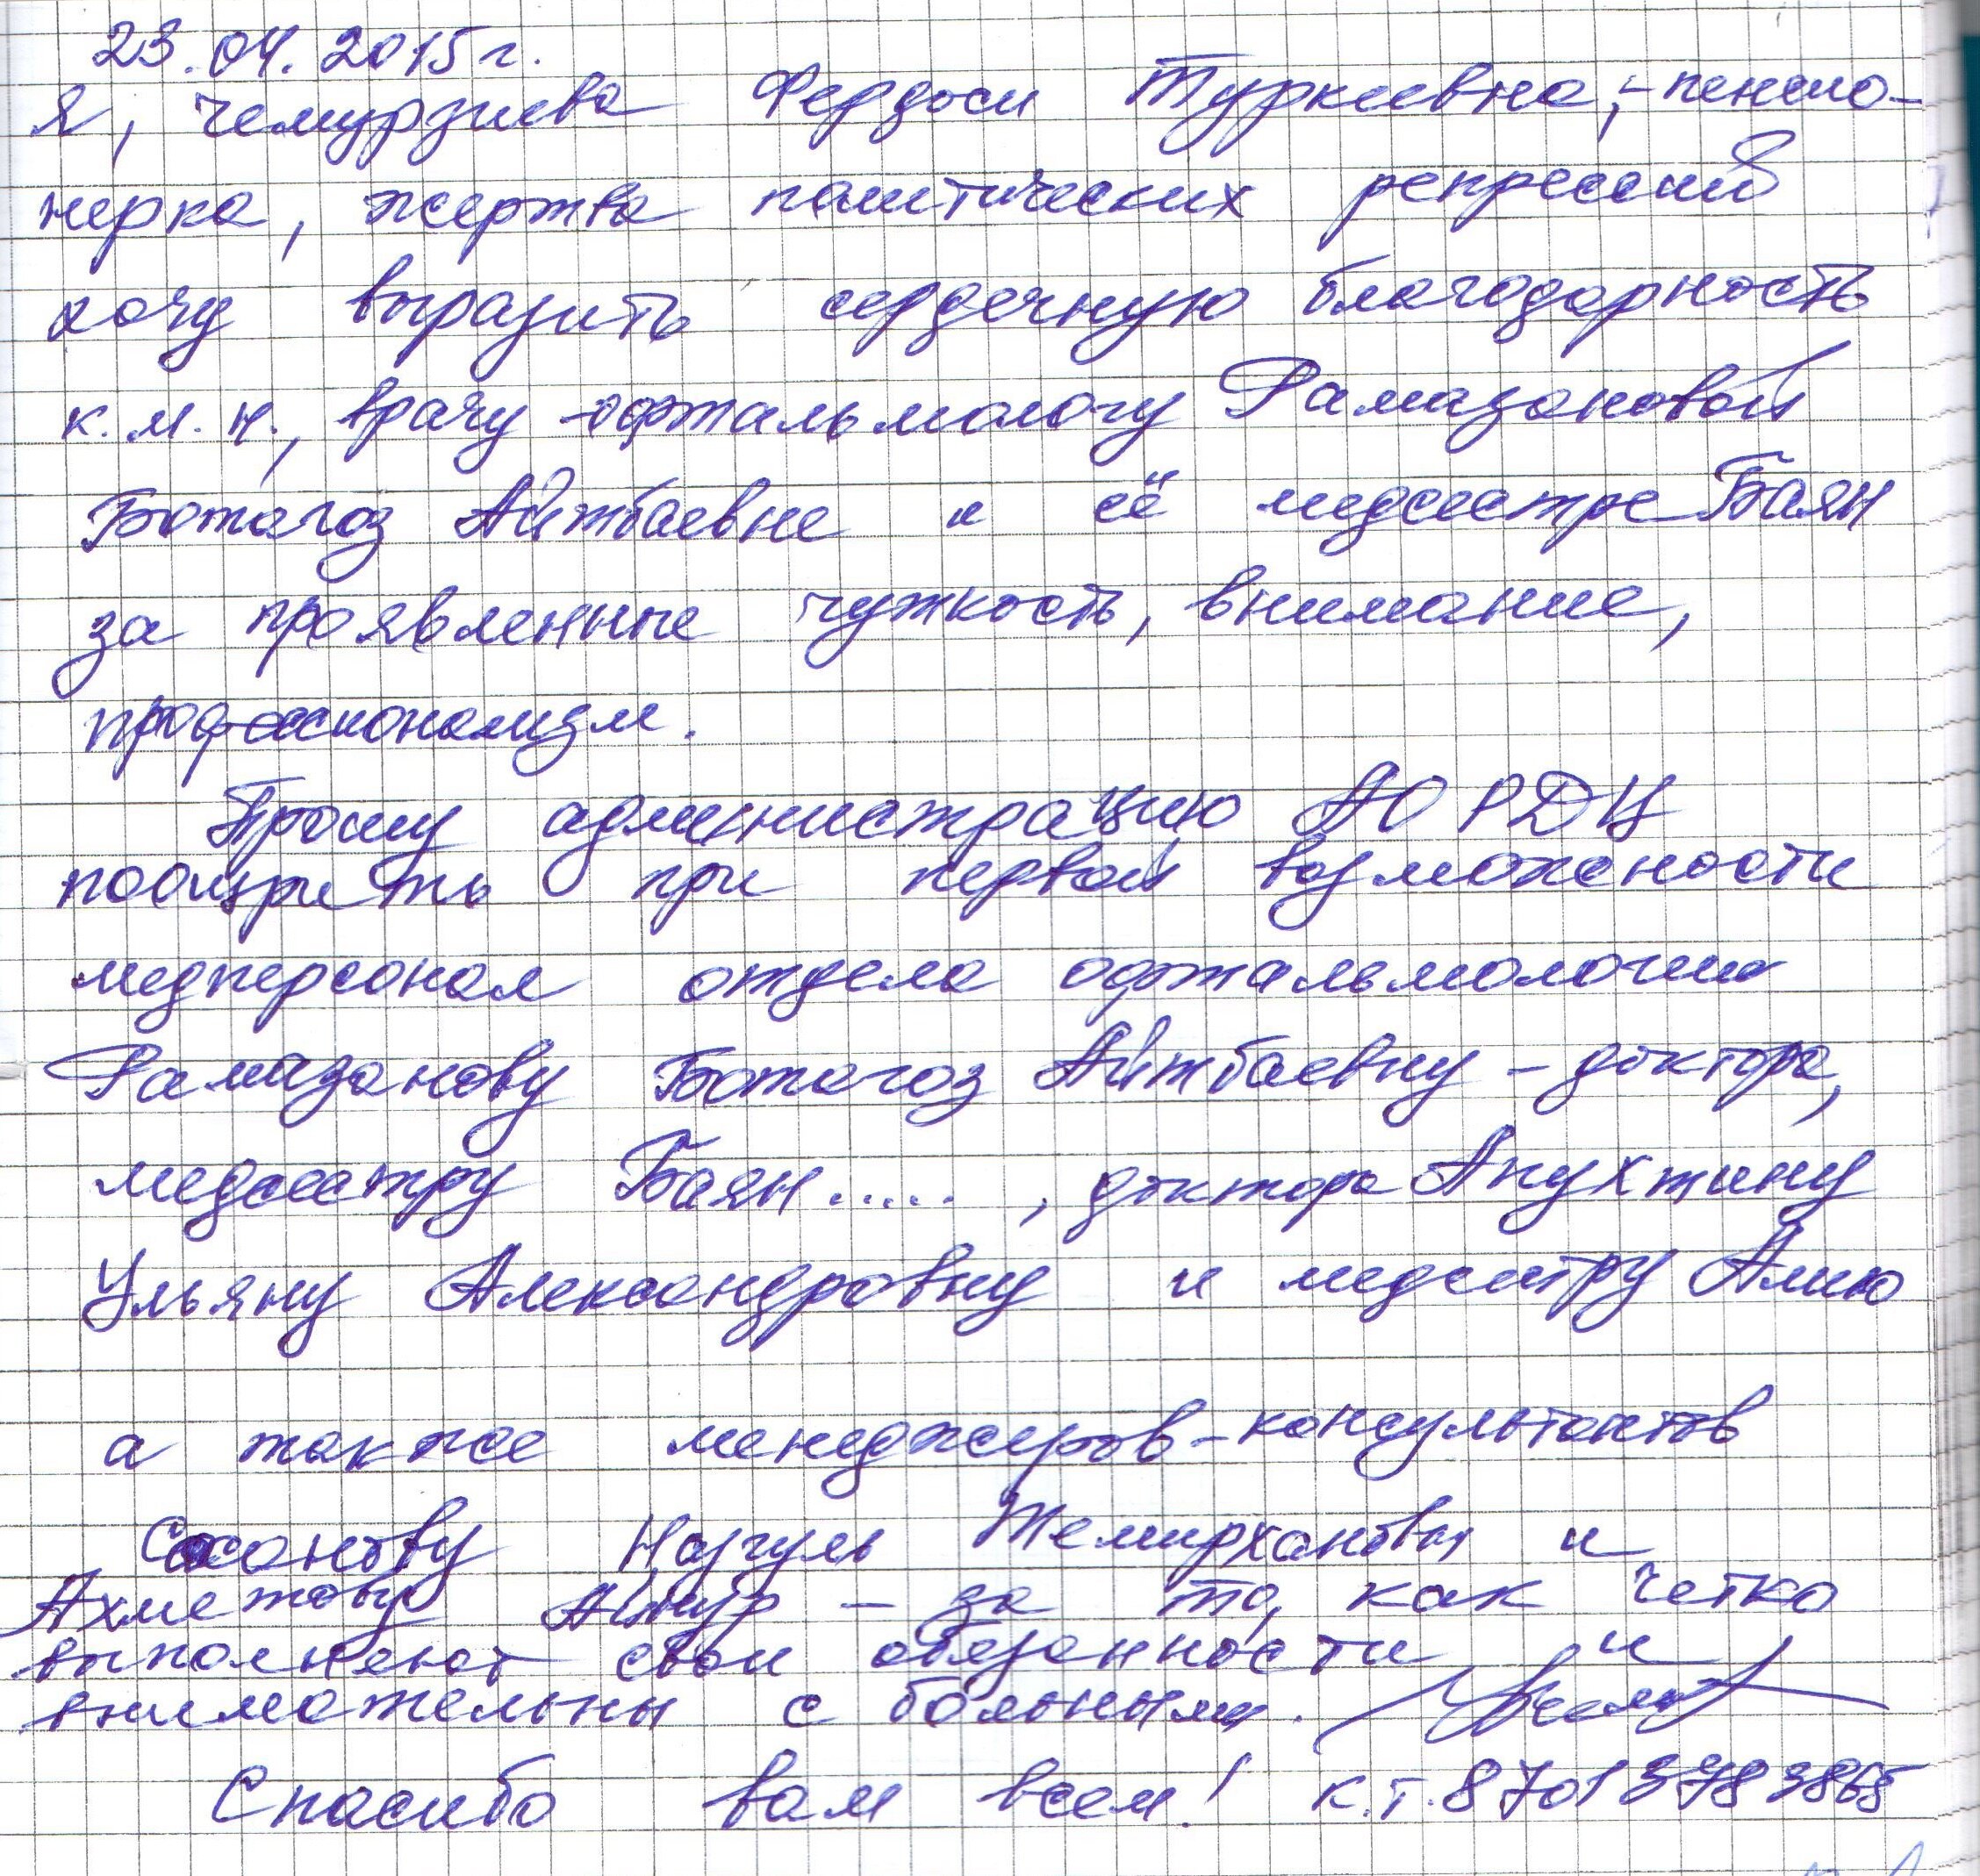 23.04.2015г.
Я, Чемурзиева Фердоси Туркиевна, - пенсио-
нерка, жертва политических репрессий
хочу выразить сердечную благодарность
к.м.н., врачу-офтальмологу Рамазановой
Ботагоз Айтбаевне и её медсестре Баян
за проявленные чуткость, внимание,
профессионализм.
Прошу администрацию АО РДЦ
поощрить при первой возможности
медперсонал отдела офтальмологии
Рамазанову Ботагоз Айтбаевну - доктора,
медсестру Баян..... , доктора Апухтину
Ульяну Александровну и медсестру Алию
а также менеджеров-консультантов
Сасанову Назгуль Темирхановну и
Ахметову Айнур - за то, как четко
выполняют свои обязанности и
внимательны с больными.
Спасибо вам всем! к.т. 8 701 378 3865